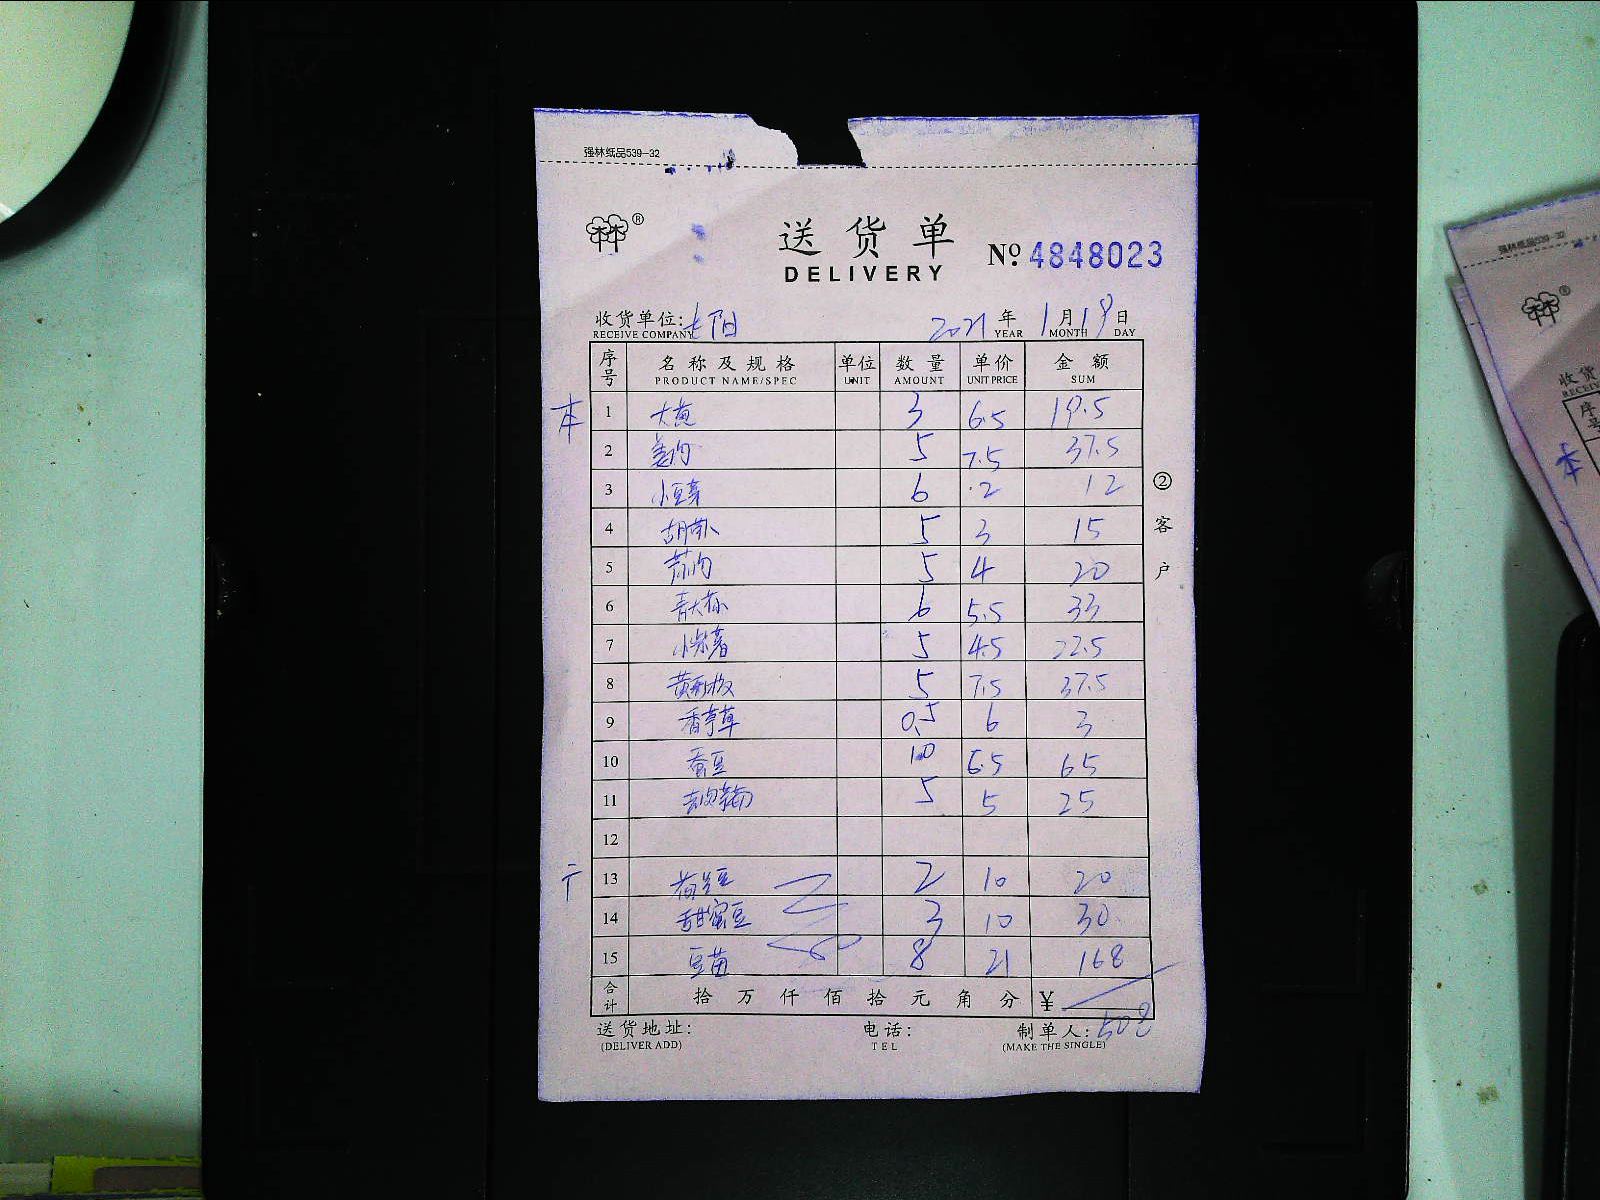 强林纸品539-32
®
送货单
DELIVERY
No 4848023
收货单位: 阳 2021年1月19日
RECEIVE COMPANY YEAR MONTH DAY
序号 名称及规格 单位 数量 单价 金额
PRODUCT NAME/SPEC UNIT AMOUNT UNIT PRICE SUM
本 1 大黄 3 6.5 19.5
2 姜肉 5 7.5 37.5
3 小豆芽 6 2 12
4 胡卜 5 3 15
5 蒜肉 5 4 20
6 青大蒜 6 5.5 33
7 小米薯 5 4.5 22.5
8 黄 5 7.5 37.5
9 香草 0.5 6 3
10 蚕豆 10 6.5 65
11 5 5 25
12
13 荷兰豆 2 10 20
14 甜蜜豆 3 10 30
15 豆苗 8 21 168
合计 拾万仟佰拾元角分 ¥
508
送货地址: 电话: 制单人:
(DELIVER ADD) TEL (MAKE THE SINGLE)
②客户
强林纸品539-32
®
收货
序号
本